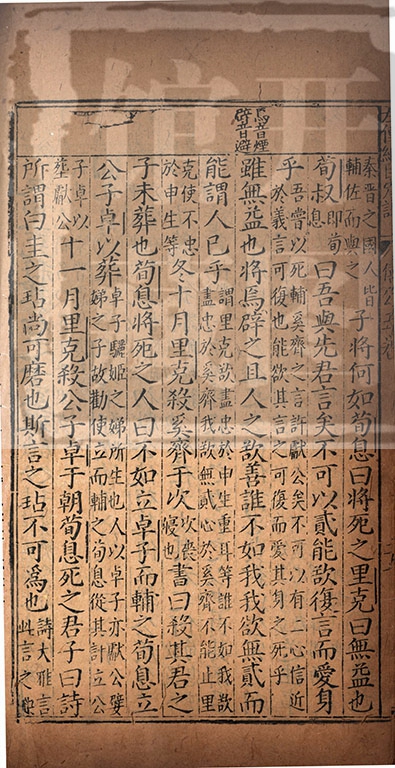 焉音煙
辟音避
秦晉之國人皆
輔佐而與之
子將何如荀息曰將死之里克曰無益也
荀叔
即荀
息
曰吾與先君言矣不可以貳能欲復言而愛身
乎
吾嘗以死輔奚齊之言許獻公矣不可以有二心信近
於義言可復也能欲其言之可復而愛其身之死乎
雖無益也將焉辟之且人之欲善誰不如我我欲無貳而
能謂人已乎
謂里克欲盡忠於申生重耳等誰不如我欲
盡忠於奚齊我欲無貳心於奚齊不能止里
克使不忠
於申生等
冬十月里克殺奚齊于次
次喪
寢也
書曰殺其君之
子未葬也荀息將死之人曰不如立卓子而輔之荀息立
公子卓以葬
卓子驪姬之娣所生也人以卓子亦獻公嬖
娣之子故勸使立而輔之荀息從其計立公
子卓以
葬獻公
十一月里克殺公子卓于朝荀息死之君子曰詩
所謂白圭之玷尚可磨也斯言之玷不可爲也
詩大雅言
此言之